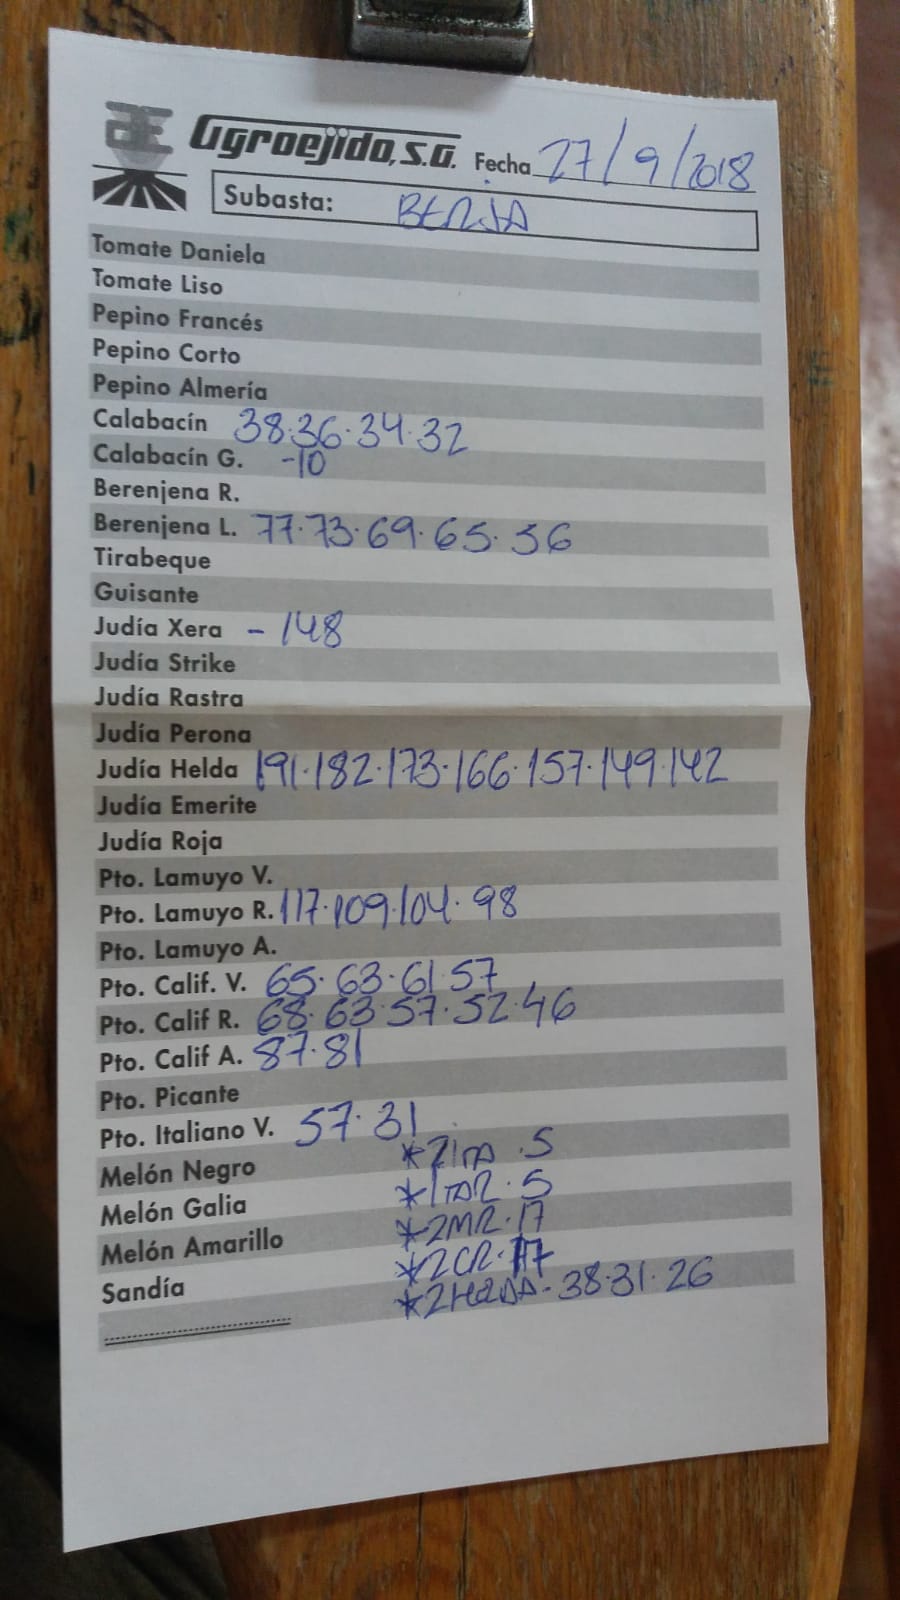 Agroejido, S.A. Fecha 27/9/2018
Subasta: BERJA
Tomate Daniela
Tomate Liso
Pepino Francés
Pepino Corto
Pepino Almería
Calabacín 38.36.34.32
Calabacín G. -10
Berenjena R.
Berenjena L. 77.73.69.65.56
Tirabeque
Guisante
Judía Xera - 148
Judía Strike
Judía Rastra
Judía Perona
Judía Helda 191.182.173.166.157.149.142
Judía Emerite
Judía Roja
Pto. Lamuyo V.
Pto. Lamuyo R. 117.109.104.98
Pto. Lamuyo A.
Pto. Calif. V. 65.63.61.57
Pto. Calif R. 68.63.57.52.46
Pto. Calif A. 87.81
Pto. Picante
Pto. Italiano V. 57.31
Melón Negro *2ITA.5
Melón Galia *1TAR.5
Melón Amarillo *2MR.17
Sandía *2CR.17
*2H2DA-38.31.26